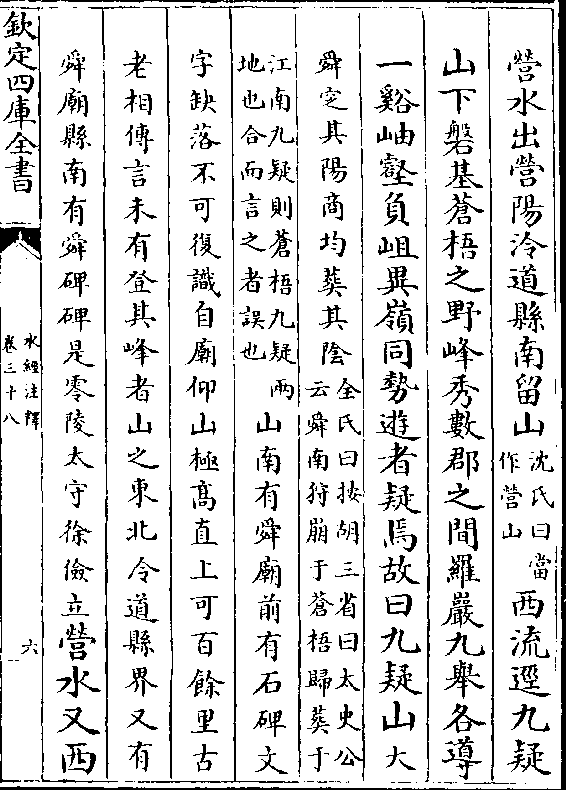 營水出營陽泠道縣南留山沈氏曰當作營山西流逕九疑
山下磐基蒼梧之野峰秀數郡之間羅巖九舉各導
一谿岫壑負岨異嶺同勢遊者疑焉故曰九疑山大
舜窆其陽商均葬其陰全氏曰按胡三省曰太史公云舜南狩崩于蒼梧歸葬于
江南九疑則蒼梧九疑兩地也合而言之者誤也山南有舜廟前有石碑文
字缺落不可復識自廟仰山極高直上可百餘里古
老相傳言未有登其峰者山之東北泠道縣界又有
舜廟縣南有舜碑碑是零陵太守徐儉立營水又西
欽定四庫全書
水經注釋
卷三十八
六